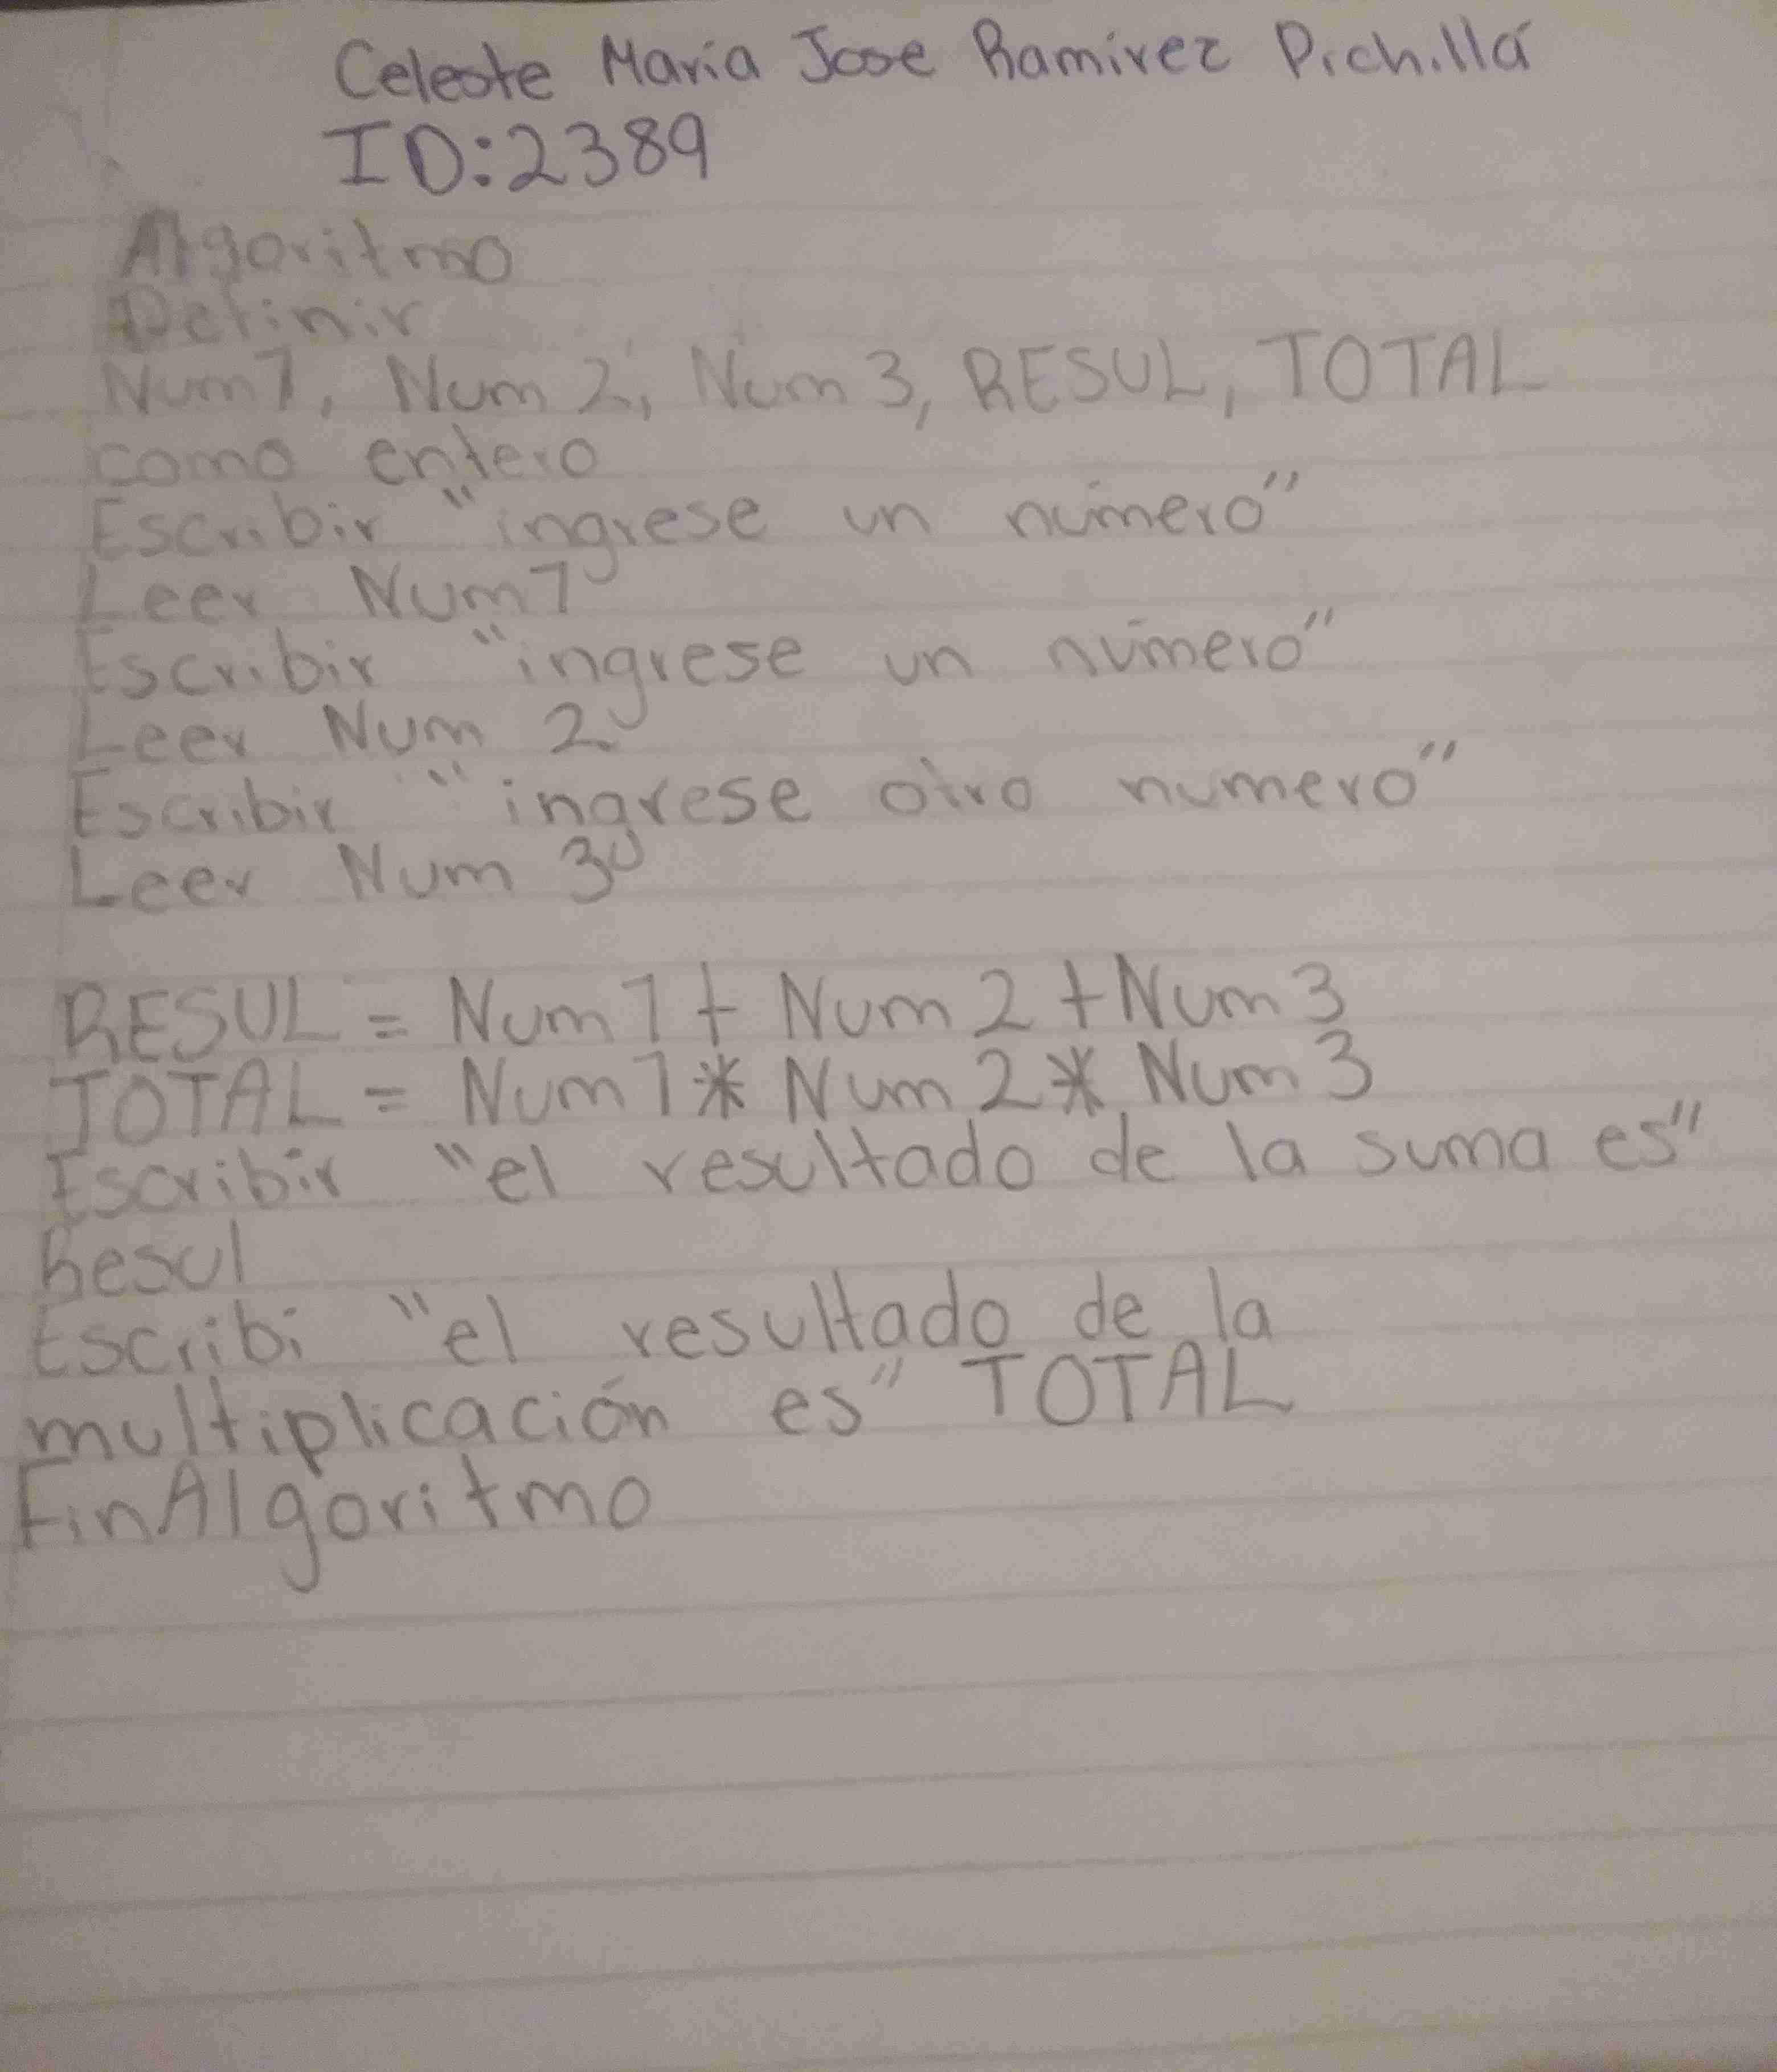 Celeste Maria Jose Ramirez Pichillá
ID:2389
Algoritmo
Definir
Num1, Num 2, Num 3, RESUL, TOTAL
como entero
Escribir "ingrese un número"
Leer Num1
Escribir "ingrese un número"
Leer Num 2
Escribir "ingrese otro numero"
Leer Num 3
RESUL = Num1 + Num 2 + Num 3
TOTAL = Num1 * Num 2 * Num 3
Escribir "el resultado de la suma es"
Resul
Escribi "el resultado de la
multiplicación es" TOTAL
FinAlgoritmo